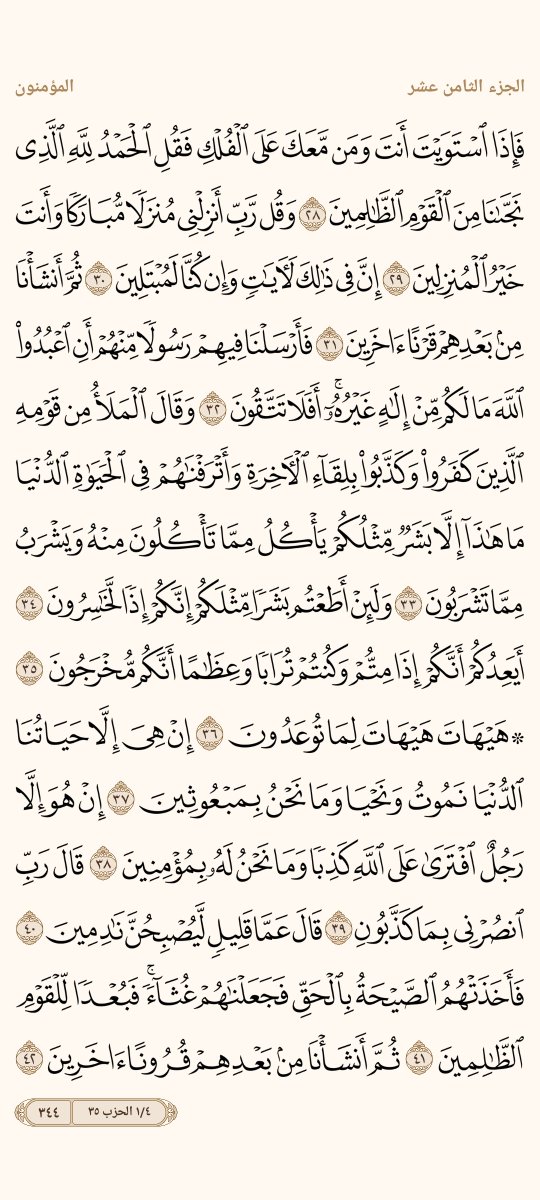 الجزء الثامن عشر
المؤمنون
فَإِذَا ٱسْتَوَيْتَ أَنتَ وَمَن مَّعَكَ عَلَى ٱلْفُلْكِ فَقُلِ ٱلْحَمْدُ لِلَّهِ ٱلَّذِى
نَجَّىٰنَا مِنَ ٱلْقَوْمِ ٱلظَّٰلِمِينَ ٢٨ وَقُل رَّبِّ أَنزِلْنِى مُنزَلًا مُّبَارَكًا وَأَنتَ
خَيْرُ ٱلْمُنزِلِينَ ٢٩ إِنَّ فِى ذَٰلِكَ لَـَٔايَـٰتٍ وَإِن كُنَّا لَمُبْتَلِينَ ٣٠ ثُمَّ أَنشَأْنَا
مِنۢ بَعْدِهِمْ قَرْنًا ءَاخَرِينَ ٣١ فَأَرْسَلْنَا فِيهِمْ رَسُولًا مِّنْهُمْ أَنِ ٱعْبُدُوا۟
ٱللَّهَ مَا لَكُم مِّنْ إِلَٰهٍ غَيْرُهُۥٓ ۚ أَفَلَا تَتَّقُونَ ٣٢ وَقَالَ ٱلْمَلَأُ مِن قَوْمِهِ
ٱلَّذِينَ كَفَرُوا۟ وَكَذَّبُوا۟ بِلِقَآءِ ٱلْـَٔاخِرَةِ وَأَتْرَفْنَٰهُمْ فِى ٱلْحَيَوٰةِ ٱلدُّنْيَا
مَا هَٰذَآ إِلَّا بَشَرٌ مِّثْلُكُمْ يَأْكُلُ مِمَّا تَأْكُلُونَ مِنْهُ وَيَشْرَبُ
مِمَّا تَشْرَبُونَ ٣٣ وَلَئِنْ أَطَعْتُم بَشَرًا مِّثْلَكُمْ إِنَّكُمْ إِذًا لَّخَٰسِرُونَ ٣٤
أَيَعِدُكُمْ أَنَّكُمْ إِذَا مِتُّمْ وَكُنتُمْ تُرَابًا وَعِظَٰمًا أَنَّكُم مُّخْرَجُونَ ٣٥
۞ هَيْهَاتَ هَيْهَاتَ لِمَا تُوعَدُونَ ٣٦ إِنْ هِىَ إِلَّا حَيَاتُنَا
ٱلدُّنْيَا نَمُوتُ وَنَحْيَا وَمَا نَحْنُ بِمَبْعُوثِينَ ٣٧ إِنْ هُوَ إِلَّا
رَجُلٌ ٱفْتَرَىٰ عَلَى ٱللَّهِ كَذِبًا وَمَا نَحْنُ لَهُۥ بِمُؤْمِنِينَ ٣٨ قَالَ رَبِّ
ٱنصُرْنِى بِمَا كَذَّبُونِ ٣٩ قَالَ عَمَّا قَلِيلٍ لَّيُصْبِحُنَّ نَٰدِمِينَ ٤٠
فَأَخَذَتْهُمُ ٱلصَّيْحَةُ بِٱلْحَقِّ فَجَعَلْنَٰهُمْ غُثَآءً ۚ فَبُعْدًا لِّلْقَوْمِ
ٱلظَّٰلِمِينَ ٤١ ثُمَّ أَنشَأْنَا مِنۢ بَعْدِهِمْ قُرُونًا ءَاخَرِينَ ٤٢
١/٤ الحزب ٣٥ ٣٤٤